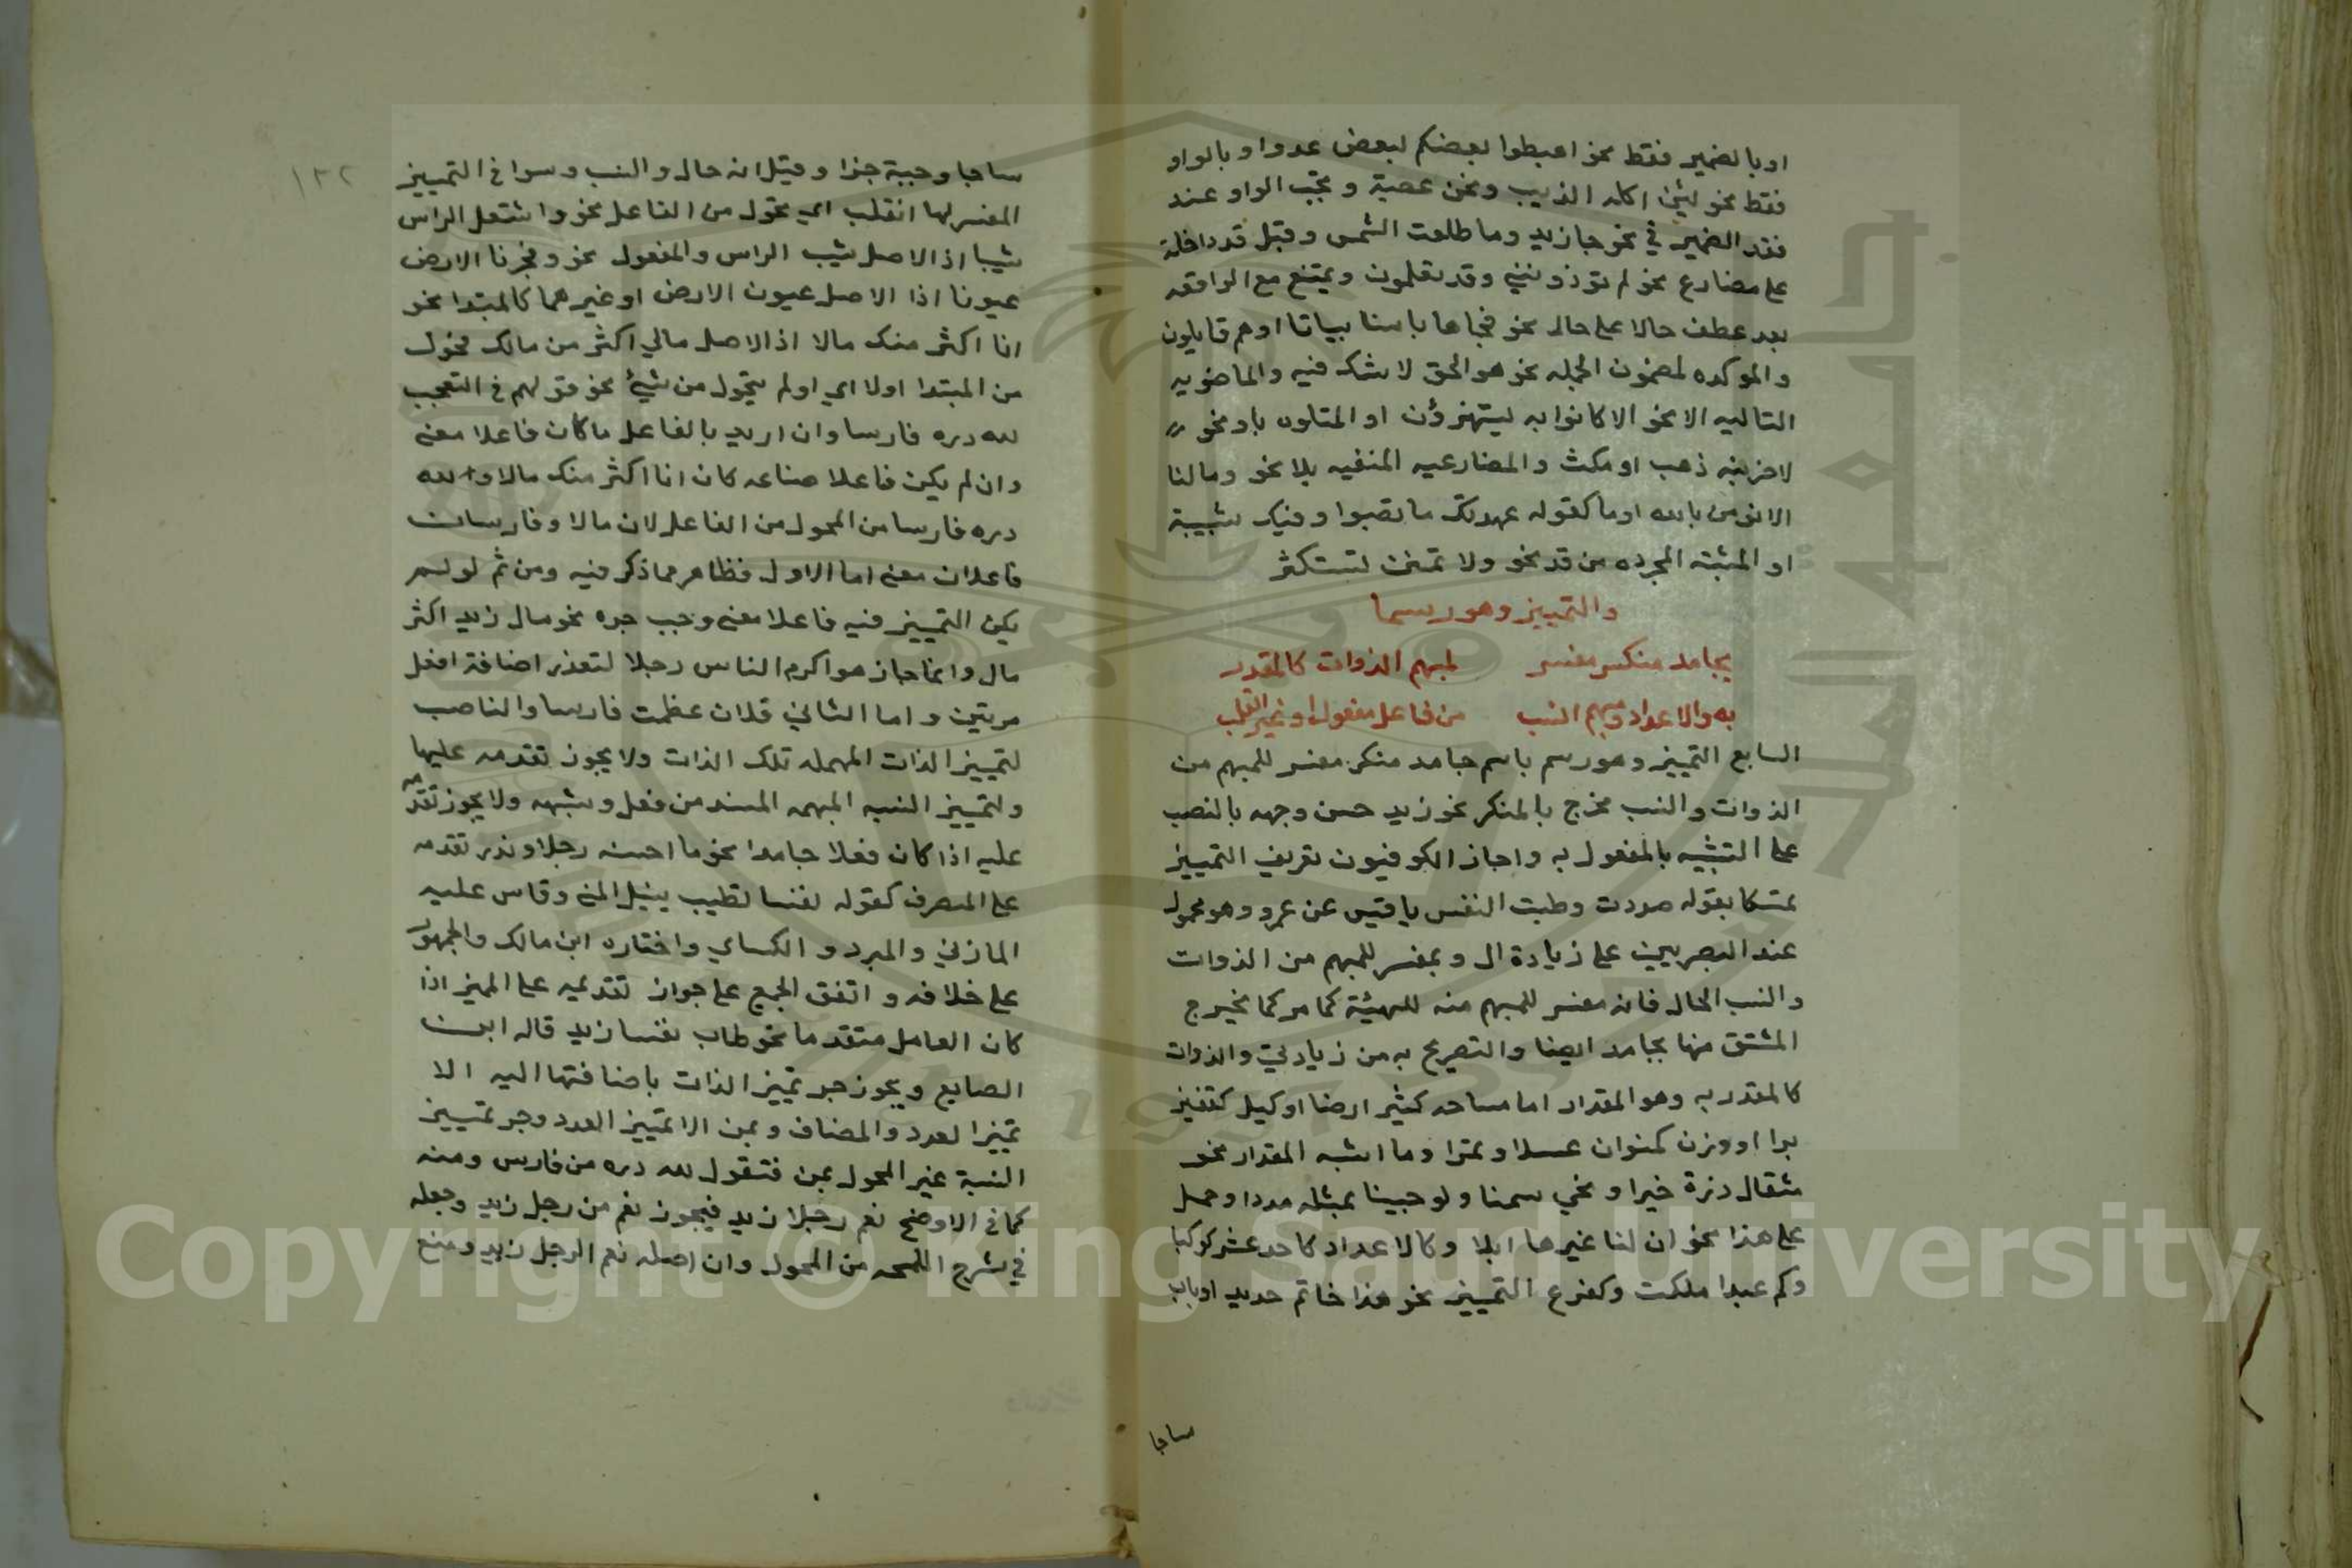 او بالضمير فقط نحو اهبطوا بعضكم لبعض عدو او بالواو
فقط نحو لئن اكله الذيب ونحن عصبة وتجب الواو عند
فقد الضمير في نحو جا زيد وما طلعت الشمس وقبل قد داخلة
على مضارع نحو لم تؤذونني وقد تعلمون ويمتنع مع الواقعه
بعد عطف حالا على حال نحو فجاها باسنا بياتا او هم قايلون
والموكده لمضمون الجمله نحو هو الحق لا شك فيه والماضويه
التاليه الا نحو الا كانوا به يستهزؤن او المتلوه باو نحو
لاضربنه ذهب او مكث والمضارعيه المنفيه بلا نحو ومالنا
لا نومن بالله او ما كقوله عهدتك ما تصبوا وفيك شبيبة
او المثبته المجرده من قد نحو ولا تمنن تستكثر
والتمييز وهو رسما
بجامد منكر مفسر لمبهم الذوات كالمقدر
به والاعداد ومبهم النسب من فاعل مفعول او غير انقلب
السابع التمييز وهو رسم باسم جامد منكر مفسر للمبهم من
الذوات والنسب مخرج بالمنكر نحو زيد حسن وجهه بالنصب
على التشبيه بالمفعول به واجاز الكوفيون تعريف التمييز
تمسكا بقوله صددت وطبت النفس يا قيس عن عمرو وهو محمول
عند البصريين على زيادة ال وبمفسر للمبهم من الذوات
والنسب الحال فانه مفسر للمبهم منه للهيئة كما مر كما يخرج
المشتق منها بجامد ايضا والتصريح به من زيادتي والذوات
كالمقدر به وهو المقدار اما مساحه كشبر ارضا او كيل كقفيز
برا او وزن كمنوان عسلا وتمرا وما اشبه المقدار نحو
مثقال ذرة خيرا ونحي سمنا ولو جيينا بمثله مددا وحمل
على هذا نحو ان لنا غيرها ابلا وكالاعداد كاحد عشر كوكبا
وكم عبدا ملكت وكفرع التمييز نحو هذا خاتم حديد او باب
ساجا
١٣٢
ساجا وجبة خزا وقيل انه حال والنسب وسوا في التمييز
المفسر لها انقلب اي تحول من الفاعل نحو واشتعل الراس
شيبا اذ الاصل شيب الراس والمفعول نحو وفجرنا الارض
عيونا اذا الاصل عيون الارض او غيرهما كالمبتدا نحو
انا اكثر منك مالا اذ الاصل مالي اكثر من مالك فحول
من المبتدا اولا اي او لم يتحول من شيئ نحو قولهم في التعجب
لله دره فارسا وان اريد بالفاعل ما كان فاعلا معنى
وان لم يكن فاعلا صناعه كان انا اكثر منك مالا ولله
دره فارسا من المحول من الفاعل لان مالا وفارسا
فاعلان معنى اما الاول فظاهر مما ذكر فيه ومن ثم لو لم
يكن التمييز فيه فاعلا معنى وجب جره نحو مال زيد اكثر
مال وانما جاز هو اكرم الناس رجلا لتعذر اضافة افعل
مرتين واما الثاني فلان عظمت فارسا والناصب
لتمييز الذات المهمله تلك الذات ولا يجوز تقدمه عليها
ولتمييز النسبه المبهمه المسند من فعل وشبهه ولا يجوز تقدمه
عليه اذا كان فعلا جامدا نحو ما احسنه رجلا وندر تقدمه
على المتصرف كقوله انفسا تطيب بنيل المنى وقاس عليه
المازني والمبرد والكساي واختاره ابن مالك والجمهور
على خلافه واتفق الجميع على جواز تقديمه على المميز اذا
كان العامل متقدما نحو طاب نفسا زيد قاله ابن
الصايع ويجوز جر تمييز الذات باضافتها اليه الا
تمييز العدد والمضاف وبمن الا تمييز العدد وجر تمييز
النسبة غير المحول بمن فتقول لله دره من فارس ومنه
كما في الاوضح نعم رجلا زيد فيجوز نعم من رجل زيد وجعله
في شرح اللمحه من المحول وان اصله نعم الرجل زيد ومنع
Copyright © King Saud University
1957